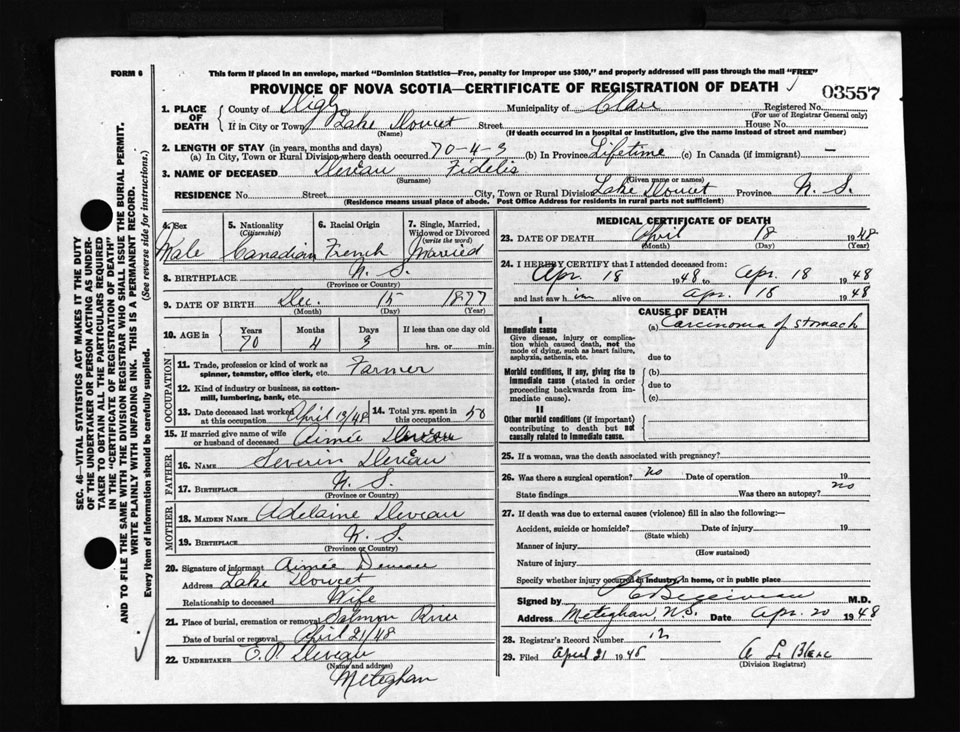 FORM 6
This form if placed in an envelope, marked "Dominion Statistics—Free, penalty for improper use $300," and properly addressed will pass through the mail "FREE"
PROVINCE OF NOVA SCOTIA—CERTIFICATE OF REGISTRATION OF DEATH
03557
1. PLACE OF DEATH County of Digby Municipality of Clare Registered No.
(For use of Registrar General only)
If in City or Town Lake Doucet Street House No.
(Name) (If death occurred in a hospital or institution, give the name instead of street and number)
2. LENGTH OF STAY (in years, months and days)
(a) In City, Town or Rural Division where death occurred 70-4-3 (b) In Province Lifetime (c) In Canada (if immigrant) —
3. NAME OF DECEASED Deveau Fidelis
(Surname) (Given name or names)
RESIDENCE No. Street City, Town or Rural Division Lake Doucet Province N. S.
(Residence means usual place of abode. Post Office Address for residents in rural parts not sufficient)
4. Sex 5. Nationality (Citizenship) 6. Racial Origin 7. Single, Married, Widowed or Divorced (write the word)
Male Canadian French Married
8. BIRTHPLACE N. S.
(Province or Country)
9. DATE OF BIRTH Dec. 15 1877
(Month) (Day) (Year)
10. AGE in Years Months Days If less than one day old
70 4 3 hrs. or min.
OCCUPATION
11. Trade, profession or kind of work as spinner, teamster, office clerk, etc. Farmer
12. Kind of industry or business, as cotton-mill, lumbering, bank, etc.
13. Date deceased last worked at this occupation April 13/48 14. Total yrs. spent in this occupation 50
15. If married give name of wife or husband of deceased Aimée Deveau
FATHER
16. NAME Severin Deveau
17. BIRTHPLACE N. S.
(Province or Country)
MOTHER
18. MAIDEN NAME Adelaine Deveau
19. BIRTHPLACE N. S.
(Province or Country)
20. Signature of informant Aimée Deveau
Address Lake Doucet
Relationship to deceased Wife
21. Place of burial, cremation or removal Salmon River
Date of burial or removal April 21/48
22. UNDERTAKER E. P. Deveau
(Name and address)
Meteghan
MEDICAL CERTIFICATE OF DEATH
23. DATE OF DEATH April 18 1948
(Month) (Day) (Year)
24. I HEREBY CERTIFY that I attended deceased from:
Apr. 18 1948 to Apr. 18 1948
and last saw him alive on Apr. 18 1948
CAUSE OF DEATH
I
Immediate cause (a) Carcinoma of stomach
Give disease, injury or complication which caused death, not the mode of dying, such as heart failure, asphyxia, asthenia, etc.
due to
Morbid conditions, if any, giving rise to immediate cause (stated in order proceeding backwards from immediate cause).
(b)
due to
(c)
II
Other morbid conditions (if important) contributing to death but not causally related to immediate cause.
25. If a woman, was the death associated with pregnancy?
26. Was there a surgical operation? no Date of operation 19
State findings Was there an autopsy? no
27. If death was due to external causes (violence) fill in also the following:—
Accident, suicide or homicide? Date of injury 19
(State which)
Manner of injury
(How sustained)
Nature of injury
Specify whether injury occurred in industry, in home, or in public place
Signed by M.D.
Address Meteghan, N.S. Date Apr. 20 1948
28. Registrar's Record Number 12
29. Filed April 21 1948 A Le Blanc
(Division Registrar)
SEC. 46—VITAL STATISTICS ACT MAKES IT THE DUTY
OF THE UNDERTAKER OR PERSON ACTING AS UNDER-
TAKER TO OBTAIN ALL THE PARTICULARS REQUIRED
IN THE "CERTIFICATE OF REGISTRATION OF DEATH"
AND TO FILE THE SAME WITH THE DIVISION REGISTRAR WHO SHALL ISSUE THE BURIAL PERMIT.
WRITE PLAINLY WITH UNFADING INK. THIS IS A PERMANENT RECORD.
Every item of information should be carefully supplied. (See reverse side for instructions.)